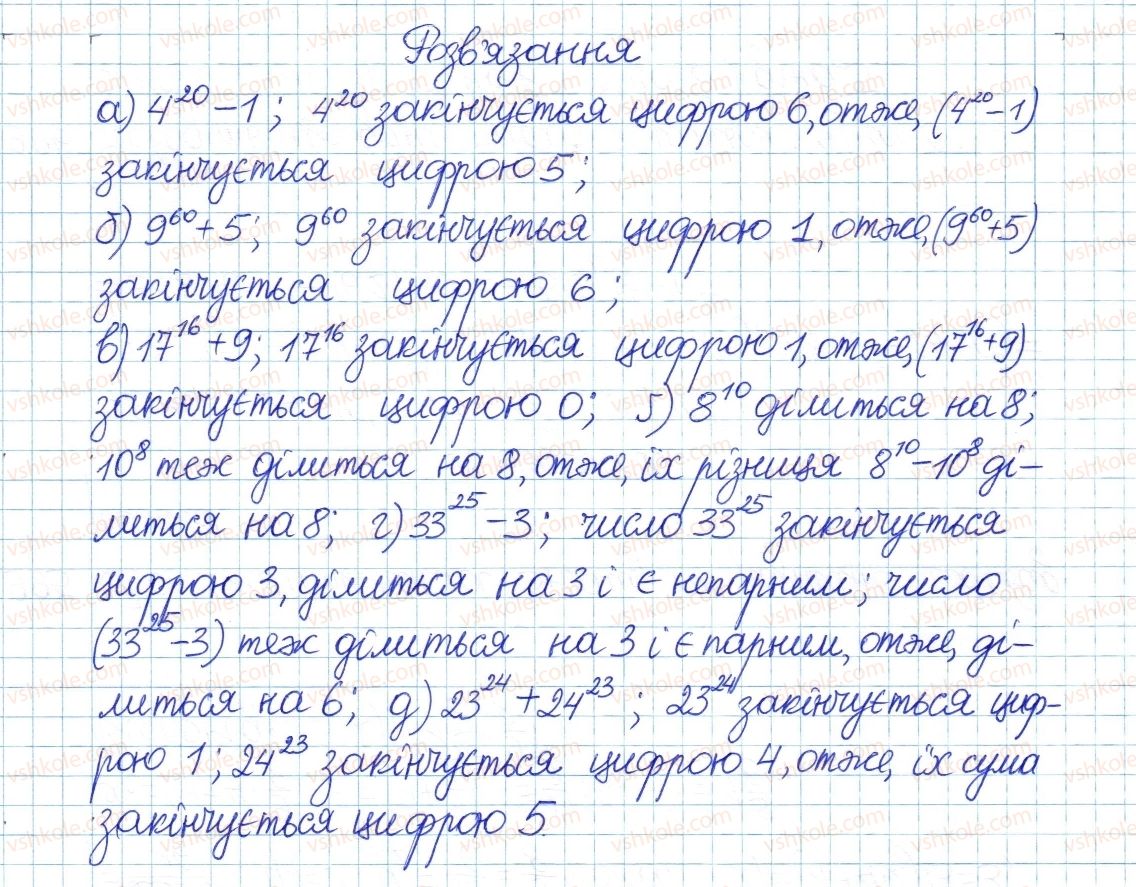 Розв'язання
а) 4²⁰ – 1; 4²⁰ закінчується цифрою 6, отже, (4²⁰ – 1)
закінчується цифрою 5;
б) 9⁶⁰ + 5; 9⁶⁰ закінчується цифрою 1, отже, (9⁶⁰ + 5)
закінчується цифрою 6;
в) 17¹⁶ + 9; 17¹⁶ закінчується цифрою 1, отже, (17¹⁶ + 9)
закінчується цифрою 0; ґ) 8¹⁰ ділиться на 8;
10⁸ теж ділиться на 8, отже, їх різниця 8¹⁰ – 10⁸ ді-
литься на 8; г) 33²⁵ – 3; число 33²⁵ закінчується
цифрою 3, ділиться на 3 і є непарним; число
(33²⁵ – 3) теж ділиться на 3 і є парним, отже, ді-
литься на 6; д) 23²⁴ + 24²³; 23²⁴ закінчується циф-
рою 1; 24²³ закінчується цифрою 4, отже, їх сума
закінчується цифрою 5